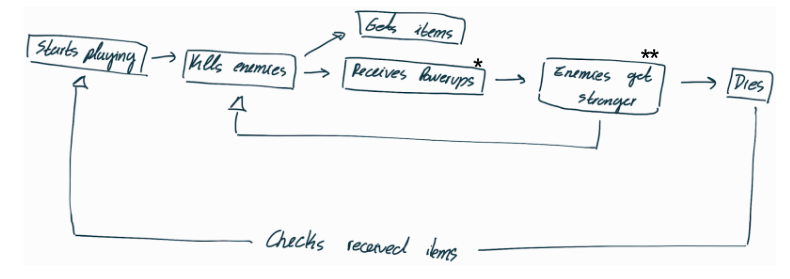 Gets items
Starts playing
Kills enemies
Receives Powerups *
**
Enemies get
stronger
Dies
Checks received items